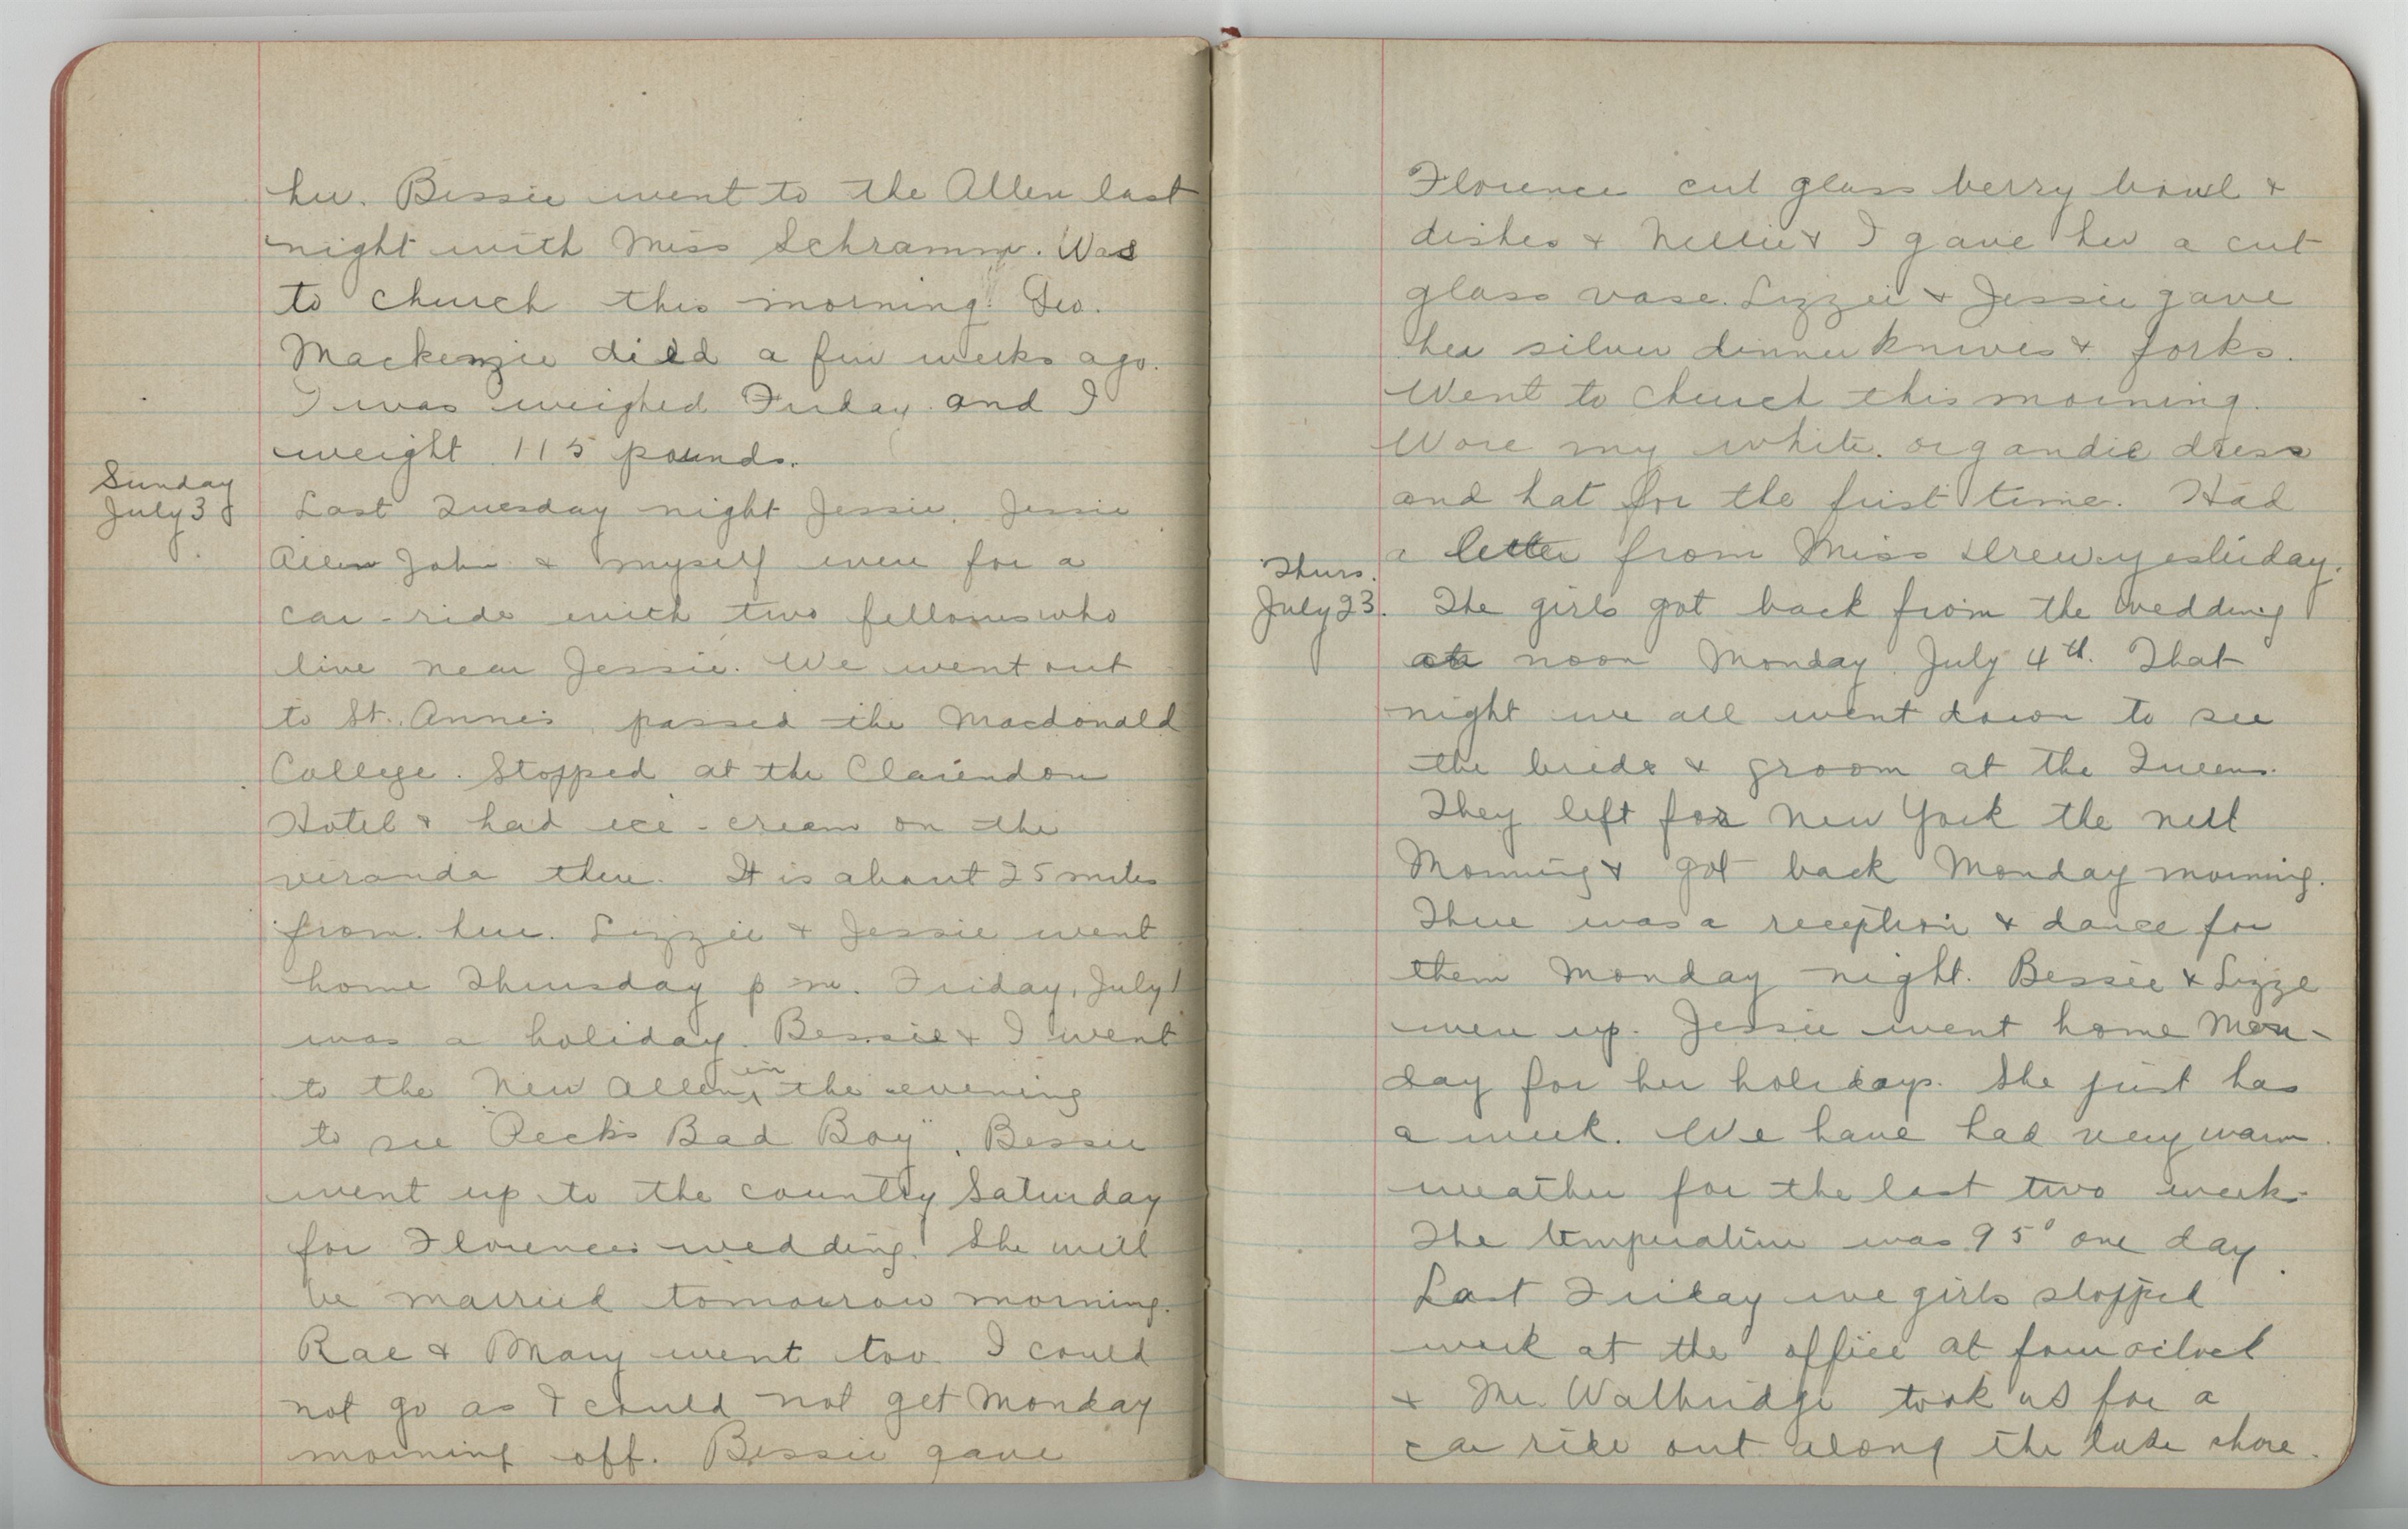 her. Bessie went to the Allen last
night with Miss Schramm. Was
to church this morning. Geo.
Mackenzie died a few weeks ago.
I was weighed Friday and I
weight 115 pounds.
Sunday
July 3
Last Tuesday night Jessie, Jessie
Allen John & myself were for a
car-ride with two fellows who
live near Jessie. We went out
to St. Anne's, passed the Macdonald
College. Stopped at the Clarendon
Hotel & had ice-cream on the
veranda there. It is about 25 miles
from here. Lizzie & Jessie went
home Thursday p m. Friday, July 1
was a holiday. Bessie & I went
to the New Allen, in the evening
to see "Peck's Bad Boy". Bessie
went up to the country Saturday
for Florences wedding. She will
be married tomorrow morning.
Rae & Mary went too. I could
not go as I could not get Monday
morning off. Bessie gave
Florence cut glass berry bowl &
dishes & Nellie & I gave her a cut
glass vase. Lizzie & Jessie gave
her silver dinner knives & forks.
Went to church this morning.
Wore my white organdie dress
and hat for the first time. Had
a letter from Miss Drew yesterday.
Thurs.
July 23.
The girls got back from the wedding
at noon Monday July 4th. That
night we all went down to see
the bride & groom at the Queens.
They left for New York the next
Morning & got back Monday morning.
There was a reception & dance for
them Monday night. Bessie & Lizze
were up. Jessie went home Mon-
day for her holidays. She just has
a week. We have had very warm
weather for the last two weeks.
The temperature was 95° one day.
Last Friday we girls stopped
work at the office at four oclock
& Mr. Walbridge took us for a
car ride out along the lake shore.